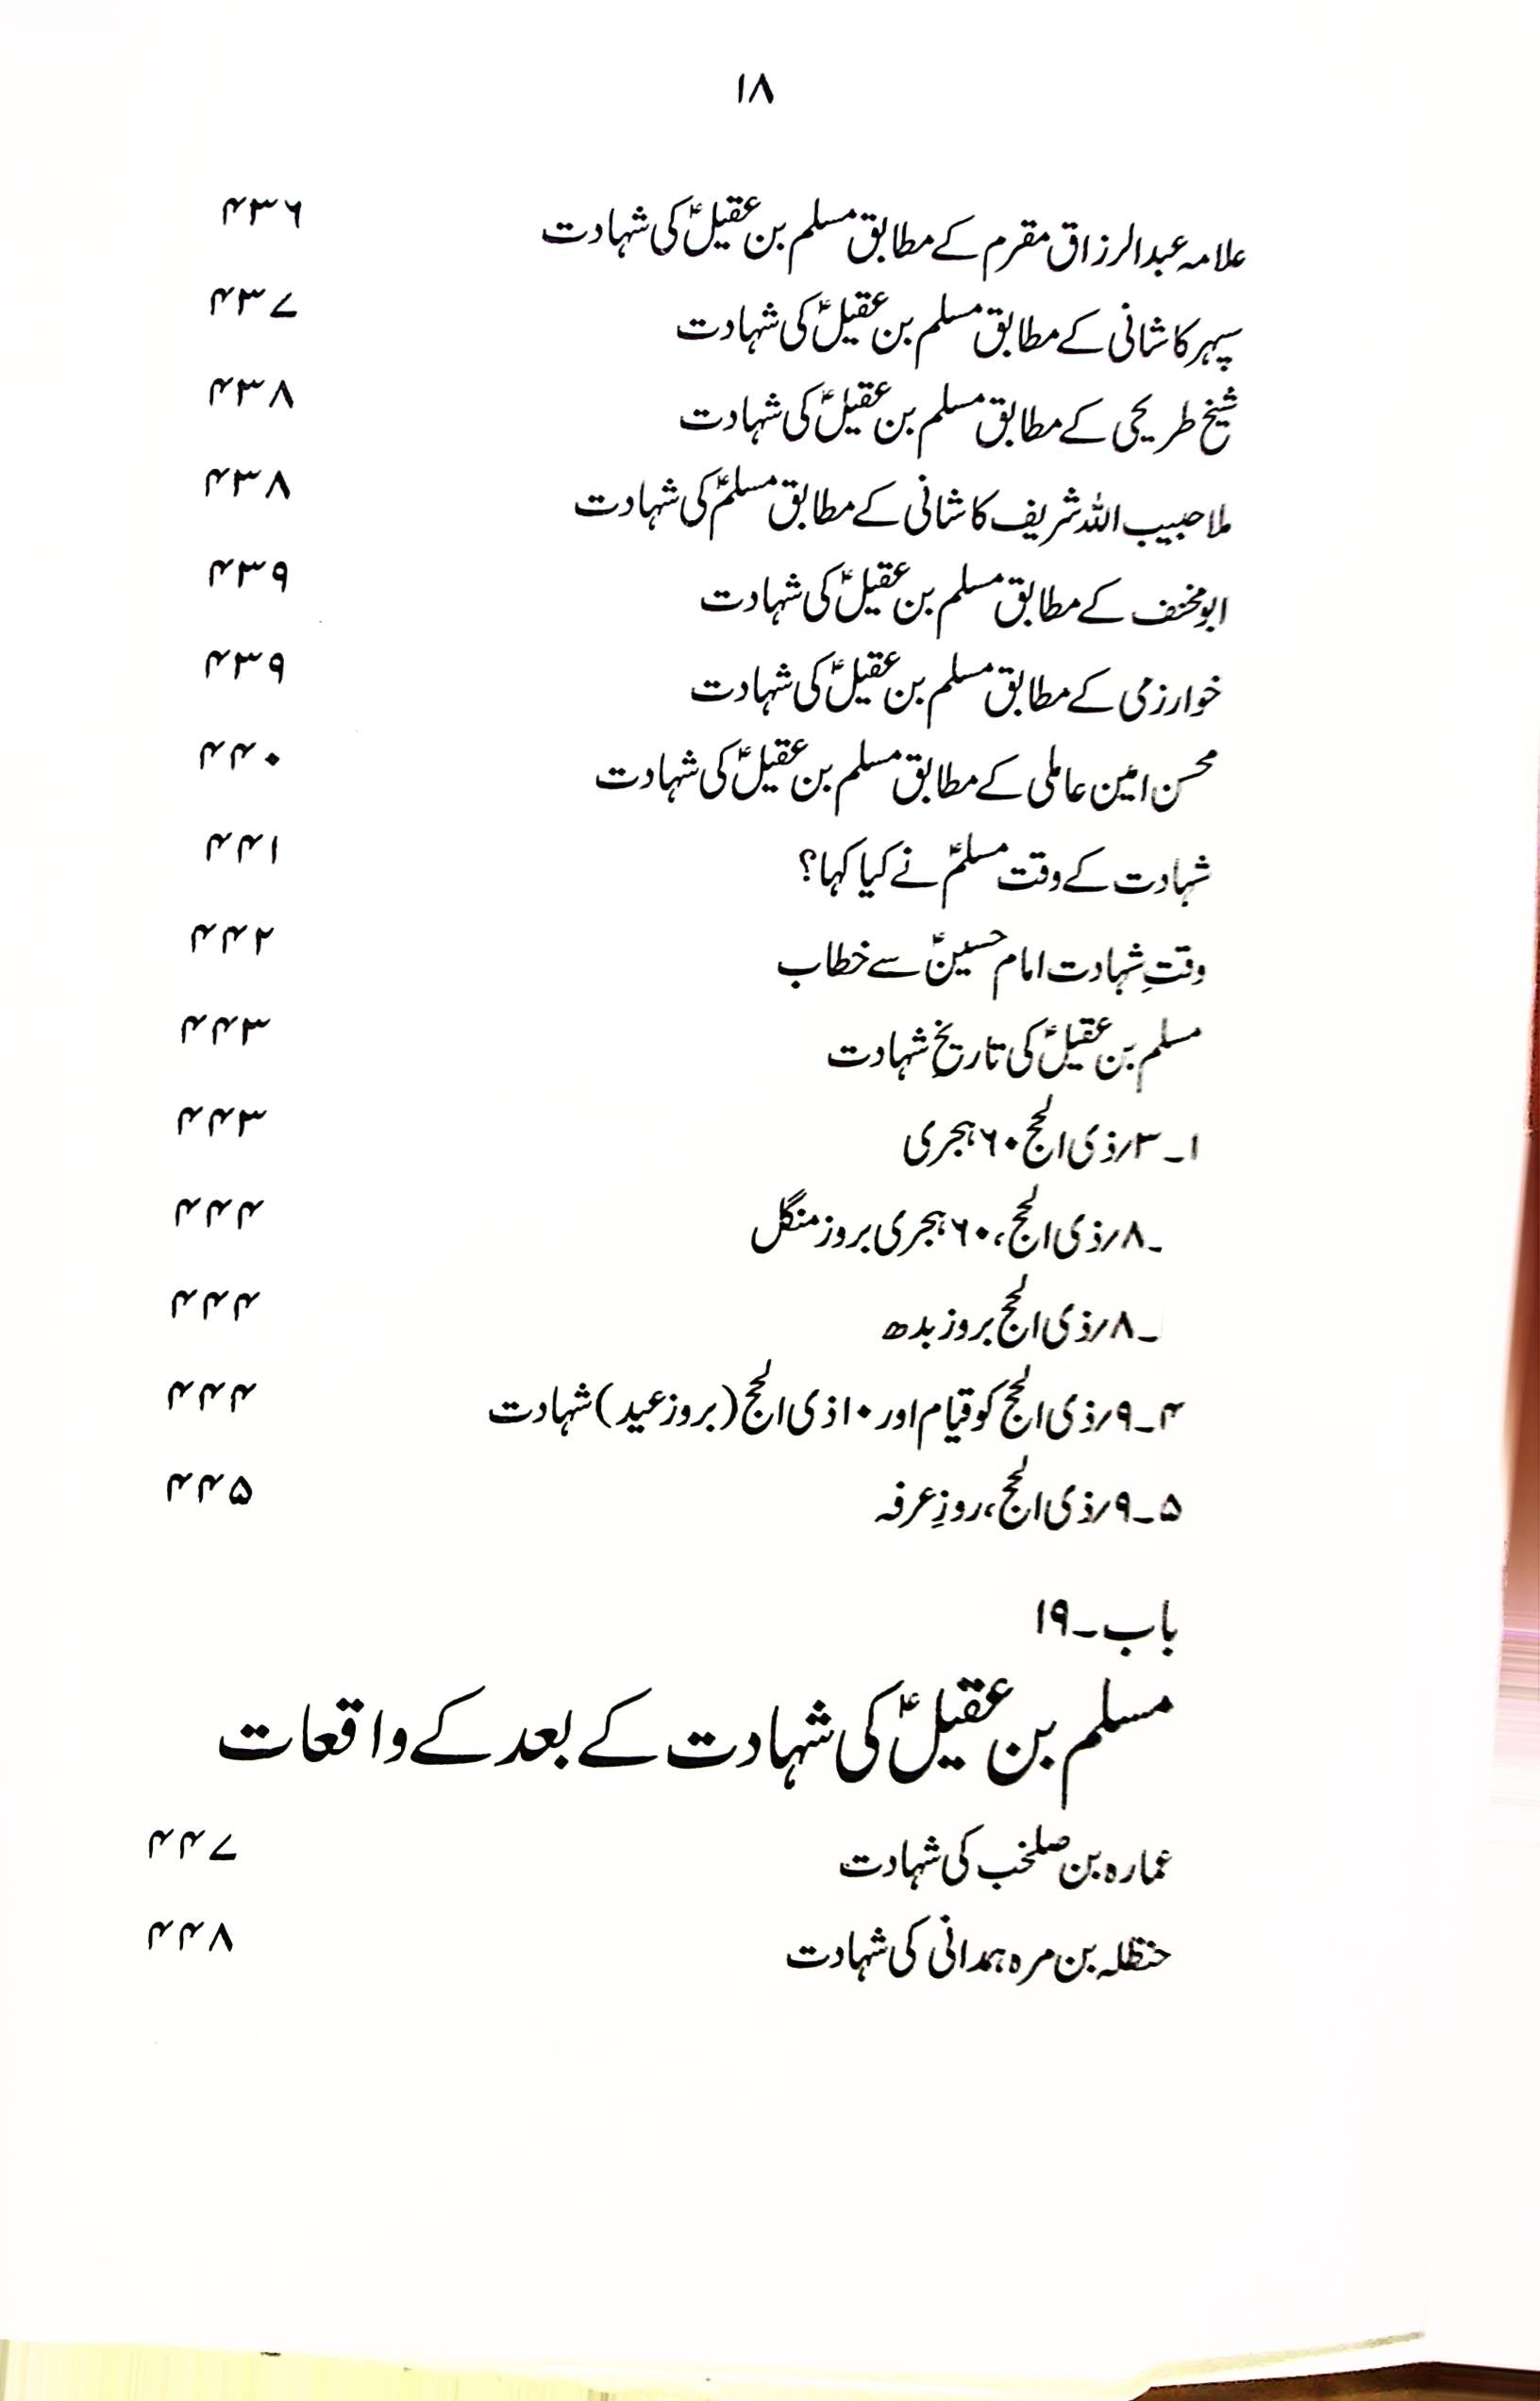 ۱۸
علامہ عبدالرزاق مقرم کے مطابق مسلم بن عقیلؑ کی شہادت ۴۳۶
سپہر کاشانی کے مطابق مسلم بن عقیلؑ کی شہادت ۴۳۷
شیخ طریحی کے مطابق مسلم بن عقیلؑ کی شہادت ۴۳۸
ملا حبیب اللہ شریف کاشانی کے مطابق مسلمؑ کی شہادت ۴۳۸
ابو مخنف کے مطابق مسلم بن عقیلؑ کی شہادت ۴۳۹
خوارزمی کے مطابق مسلم بن عقیلؑ کی شہادت ۴۳۹
محسن امین عاملی کے مطابق مسلم بن عقیلؑ کی شہادت ۴۴۰
شہادت کے وقت مسلمؑ نے کیا کہا؟ ۴۴۱
وقتِ شہادت امام حسینؑ سے خطاب ۴۴۲
مسلم بن عقیلؑ کی تاریخِ شہادت ۴۴۳
۱۔ ۳؍ذی الحج ۶۰ ہجری ۴۴۳
۔۸؍ذی الحج، ۶۰ ہجری بروز منگل ۴۴۴
۔۸؍ذی الحج بروز بدھ ۴۴۴
۴۔۹؍ذی الحج کو قیام اور ۱۰ ذی الحج (بروز عید) شہادت ۴۴۴
۵۔۹؍ذی الحج، روزِ عرفہ ۴۴۵
باب۔۱۹
مسلم بن عقیلؑ کی شہادت کے بعد کے واقعات
عمارہ بن صلخب کی شہادت ۴۴۷
حنظلہ بن مرہ ہمدانی کی شہادت ۴۴۸